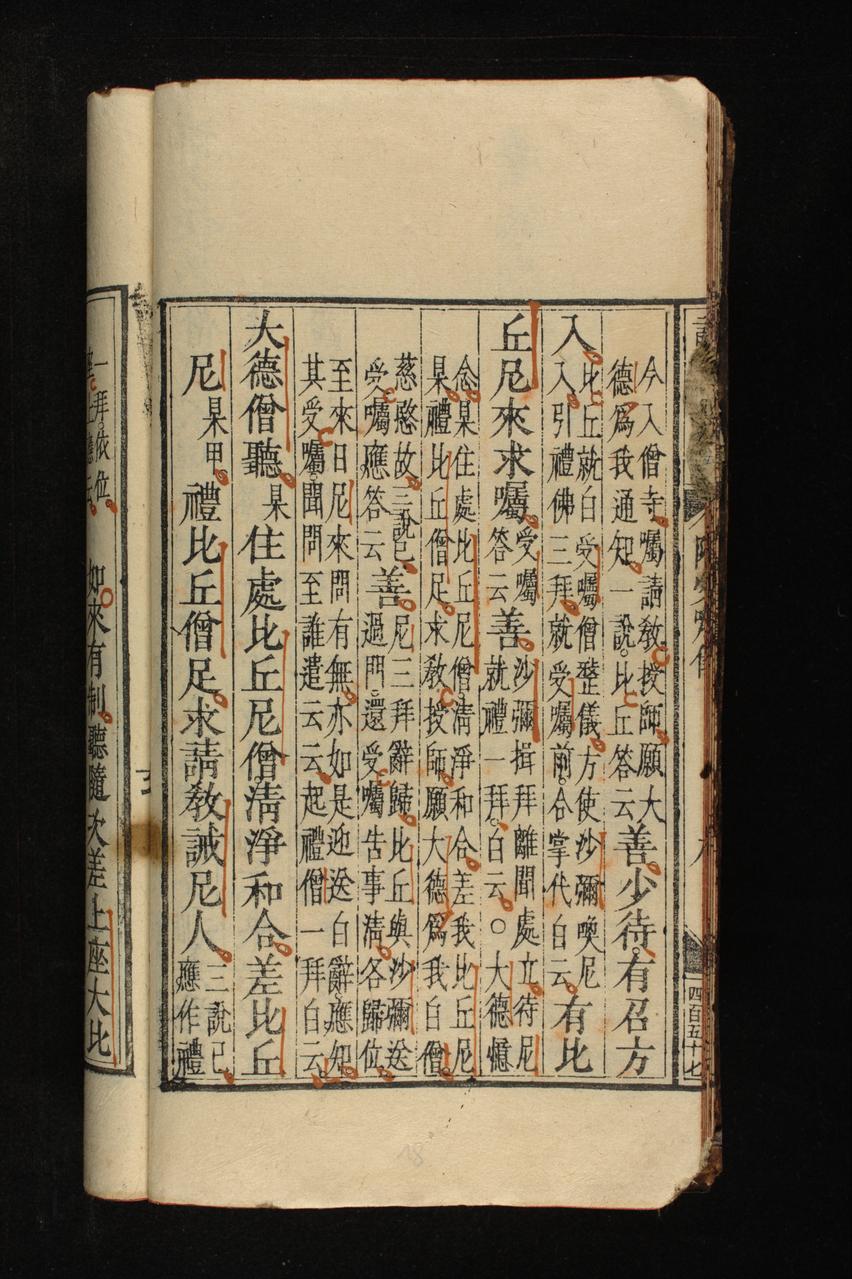 四百五十七
今入僧寺囑請教授師願大
德爲我通知一說。比丘答云
善少待有召方
入
比丘就白受囑僧整儀方使沙彌喚尼
入引禮佛三拜就受囑前合掌代白云
有比
丘尼來求囑
受囑
答云
善
沙彌揖拜離聞處立待尼
就禮一拜。白云○大德憶
念某住處比丘尼僧清淨和合差我比丘尼
某禮比丘僧足求教授師願大德爲我白僧
慈愍故三說已
受囑應答云
善
尼三拜辭歸比丘與沙彌送
過門還受囑告事清各歸位
至來日尼來問有無亦如是迎送白辭應知
其受囑聞問至誰遣云云起禮僧一拜白云
大德僧聽某住處比丘尼僧清淨和合差比丘
尼某甲禮比丘僧足求請教誡尼人
三說已
應作禮
一拜。依位
如來有制聽隨次差上座大比